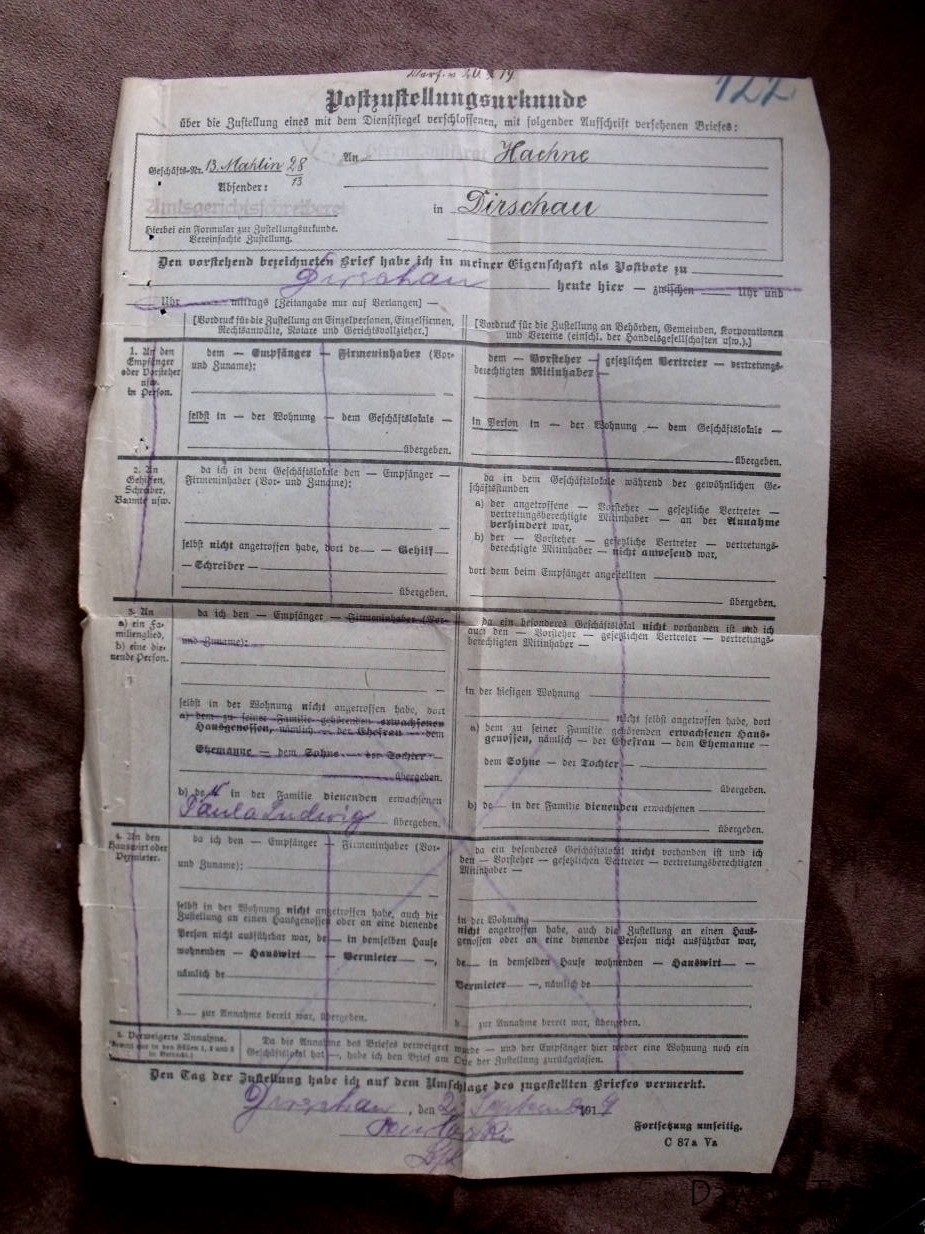 Verf. v. 20. 9. 19.
122
Postzustellungsurkunde
über die Zustellung eines mit dem Dienstsiegel verschlossenen, mit folgender Aufschrift versehenen Briefes:
Geschäfts-Nr. 13 Mahlin 28/13
An Haehne
Absender:
Amtsgerichtsschreiberei
in Dirschau
Hierbei ein Formular zur Zustellungsurkunde.
Vereinfachte Zustellung.
Den vorstehend bezeichneten Brief habe ich in meiner Eigenschaft als Postbote zu
Dirschau heute hier — zwischen Uhr und
Uhr mittags [Zeitangabe nur auf Verlangen] —
[Vordruck für die Zustellung an Einzelpersonen, Einzelfirmen,
Rechtsanwälte, Notare und Gerichtsvollzieher.]
[Vordruck für die Zustellung an Behörden, Gemeinden, Korporationen
und Vereine (einschl. der Handelsgesellschaften usw.).]
1. An den
Empfänger
oder Vorsteher
usw.
in Person.
dem — Empfänger — Firmeninhaber (Vor-
und Zuname):
selbst in — der Wohnung — dem Geschäftslokale —
übergeben.
dem — Vorsteher — gesetzlichen Vertreter — vertretungs-
berechtigten Mitinhaber —
in Person in — der Wohnung — dem Geschäftslokale —
übergeben.
2. An
Gehilfen,
Schreiber,
Beamte usw.
da ich in dem Geschäftslokale den — Empfänger —
Firmeninhaber (Vor- und Zuname):
selbst nicht angetroffen habe, dort de — Gehilf —
— Schreiber —
übergeben.
da in dem Geschäftslokale während der gewöhnlichen Ge-
schäftsstunden
a) der angetroffene — Vorsteher — gesetzliche Vertreter —
vertretungsberechtigte Mitinhaber — an der Annahme
verhindert war,
b) der — Vorsteher — gesetzliche Vertreter — vertretungs-
berechtigte Mitinhaber — nicht anwesend war,
dort dem beim Empfänger angestellten
übergeben.
3. An
a) ein Fa-
milienglied,
b) eine die-
nende Person.
da ich den — Empfänger — Firmeninhaber (Vor-
und Zuname):
selbst in der Wohnung nicht angetroffen habe, dort
a) dem zu seiner Familie gehörenden erwachsenen
Hausgenossen, nämlich — der Ehefrau — dem
Ehemanne — dem Sohne — der Tochter —
übergeben.
b) de r in der Familie dienenden erwachsenen
Paula Ludwig übergeben.
da ein besonderes Geschäftslokal nicht vorhanden ist und ich
auch den — Vorsteher — gesetzlichen Vertreter — vertretungs-
berechtigten Mitinhaber —
in der hiesigen Wohnung
nicht selbst angetroffen habe, dort
a) dem zu seiner Familie gehörenden erwachsenen Haus-
genossen, nämlich — der Ehefrau — dem Ehemanne —
dem Sohne — der Tochter —
übergeben.
b) de in der Familie dienenden erwachsenen
übergeben.
4. An den
Hauswirt oder
Vermieter.
da ich den — Empfänger — Firmeninhaber (Vor-
und Zuname):
selbst in der Wohnung nicht angetroffen habe, auch die
Zustellung an einen Hausgenossen oder an eine dienende
Person nicht ausführbar war, de in demselben Hause
wohnenden — Hauswirt — Vermieter —,
nämlich de
d zur Annahme bereit war, übergeben.
da ein besonderes Geschäftslokal nicht vorhanden ist und ich
den — Vorsteher — gesetzlichen Vertreter — vertretungsberechtigten
Mitinhaber —
in der Wohnung
nicht angetroffen habe, auch die Zustellung an einen Haus-
genossen oder an eine dienende Person nicht ausführbar war,
de in demselben Hause wohnenden — Hauswirt —
Vermieter —, nämlich de
d zur Annahme bereit war, übergeben.
5. Verweigerte Annahme.
Da die Annahme des Briefes verweigert wurde — und der Empfänger hier weder eine Wohnung noch ein
Geschäftslokal hat —, habe ich den Brief am Orte der Zustellung zurückgelassen.
Den Tag der Zustellung habe ich auf dem Umschlage des zugestellten Briefes vermerkt.
Dirschau, den September 1919
Fortsetzung umseitig.
C 87a Va